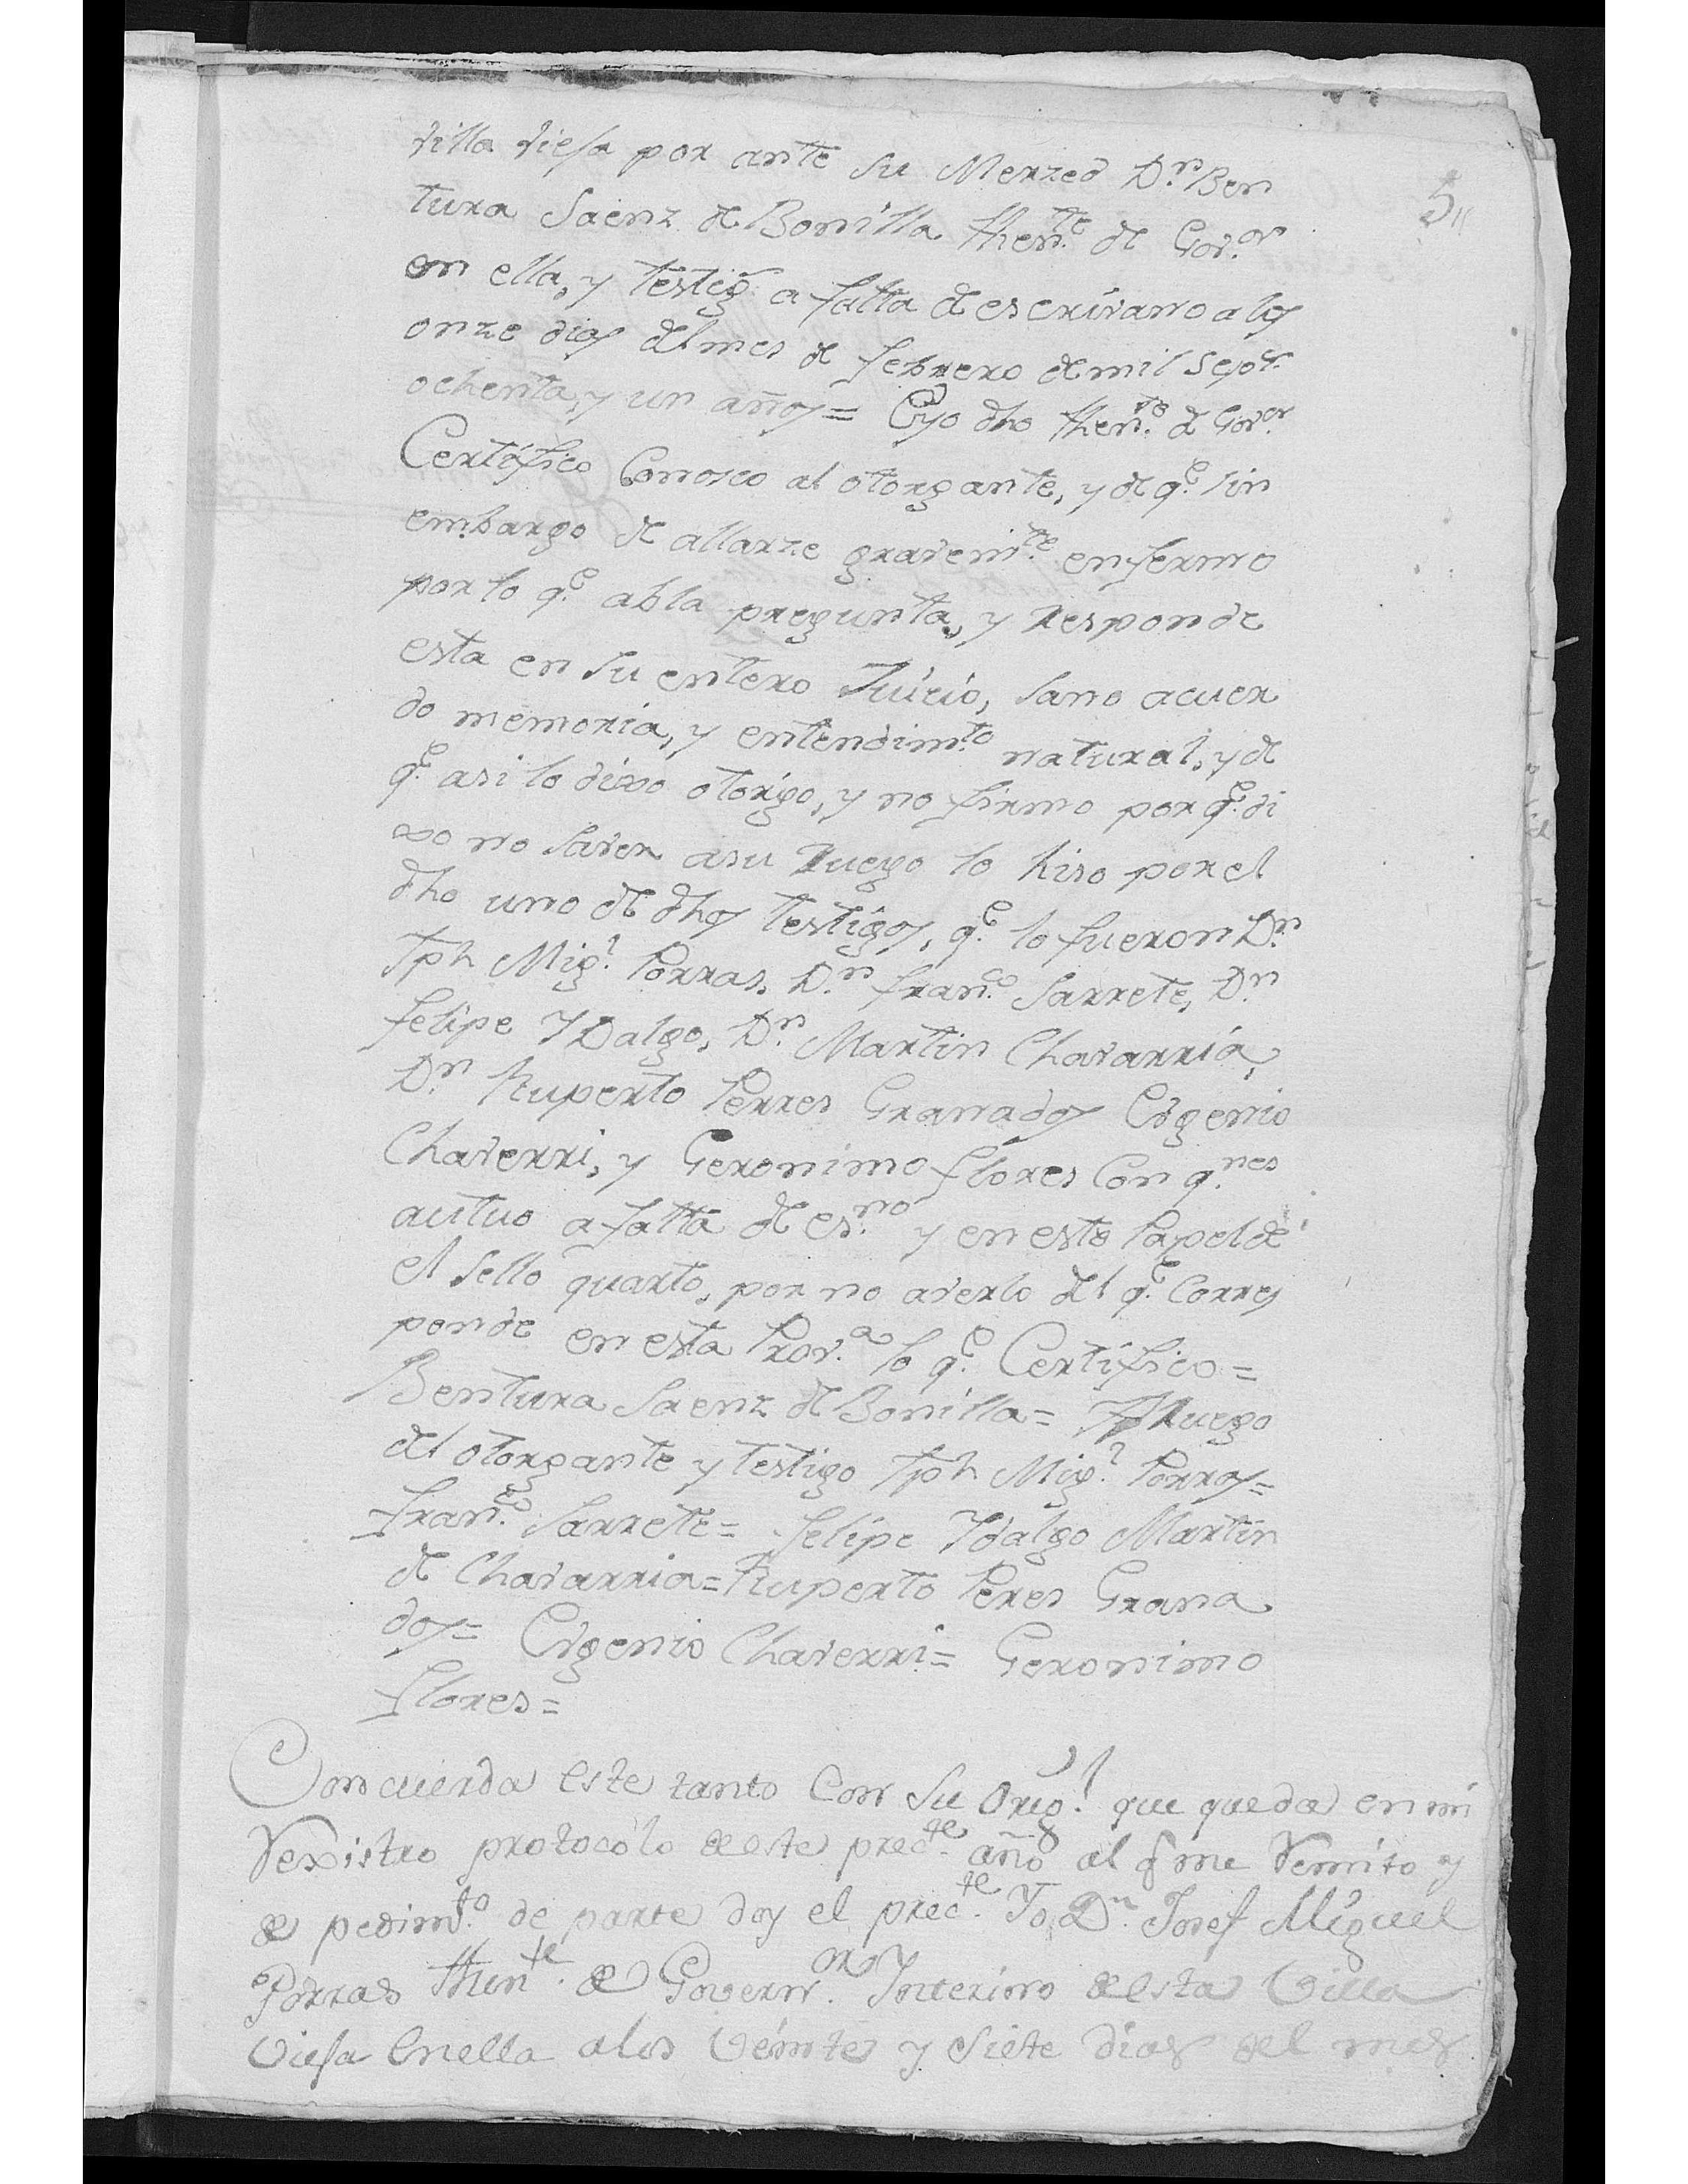 5
villa viesa por ante su Merzed Dn. Ben
tura Saenz de Bonilla thente. de Govor.
en ella, y testigs. a falta de escrivano a los
onze dias del mes de febrero de mil septs.
ochenta, y un años = E yo dho thente. de Govor.
Certifico Conosco al otorgante, y de qe. sin
embargo de allarze gravemte. enfermo
por lo qe. abla pregunta, y responde
esta en su entero Juicio, sano acuer
do memoria, y entendimto. natural, y de
qe. asi lo dixo otorgo, y no firmo por qe. di
xo no saver a su Ruego lo hiso por el
dho uno de dhos testigos, qe. lo fueron Dn.
Jph Migl. Porras, Dn. franco. Sarrete, Dn.
felipe Ydalgo, Dn. Martin Chavarria,
Dn. Ruperto Perres Granados Eugenio
Chaverri, y Geronimo flores Con qnes.
autuo a falta de esno. y en este Papel de
el sello quarto, por no averlo del qe. Corres
ponde en esta Prova. lo qe. Certifico =
Bentura Saenz de Bonilla = A Ruego
del otorgante y testigo Jph Migl. Porras =
franco. Sarrete = felipe Ydalgo Martin
de Chavarria = Ruperto Peres Grana
dos = Eugenio Chaverri = Geronimo
flores =
Concuerda este tanto Con Su Origl. que queda en mi
Rexistro protocolo de este precte. año al q me Remito y
de pedimto. de parte doy el precte. Yo Dn. Josef Miguel
Porras thente. de Governor. Ynterino de esta Villa
Viesa En ella a los Veinte y Siete dias del mes